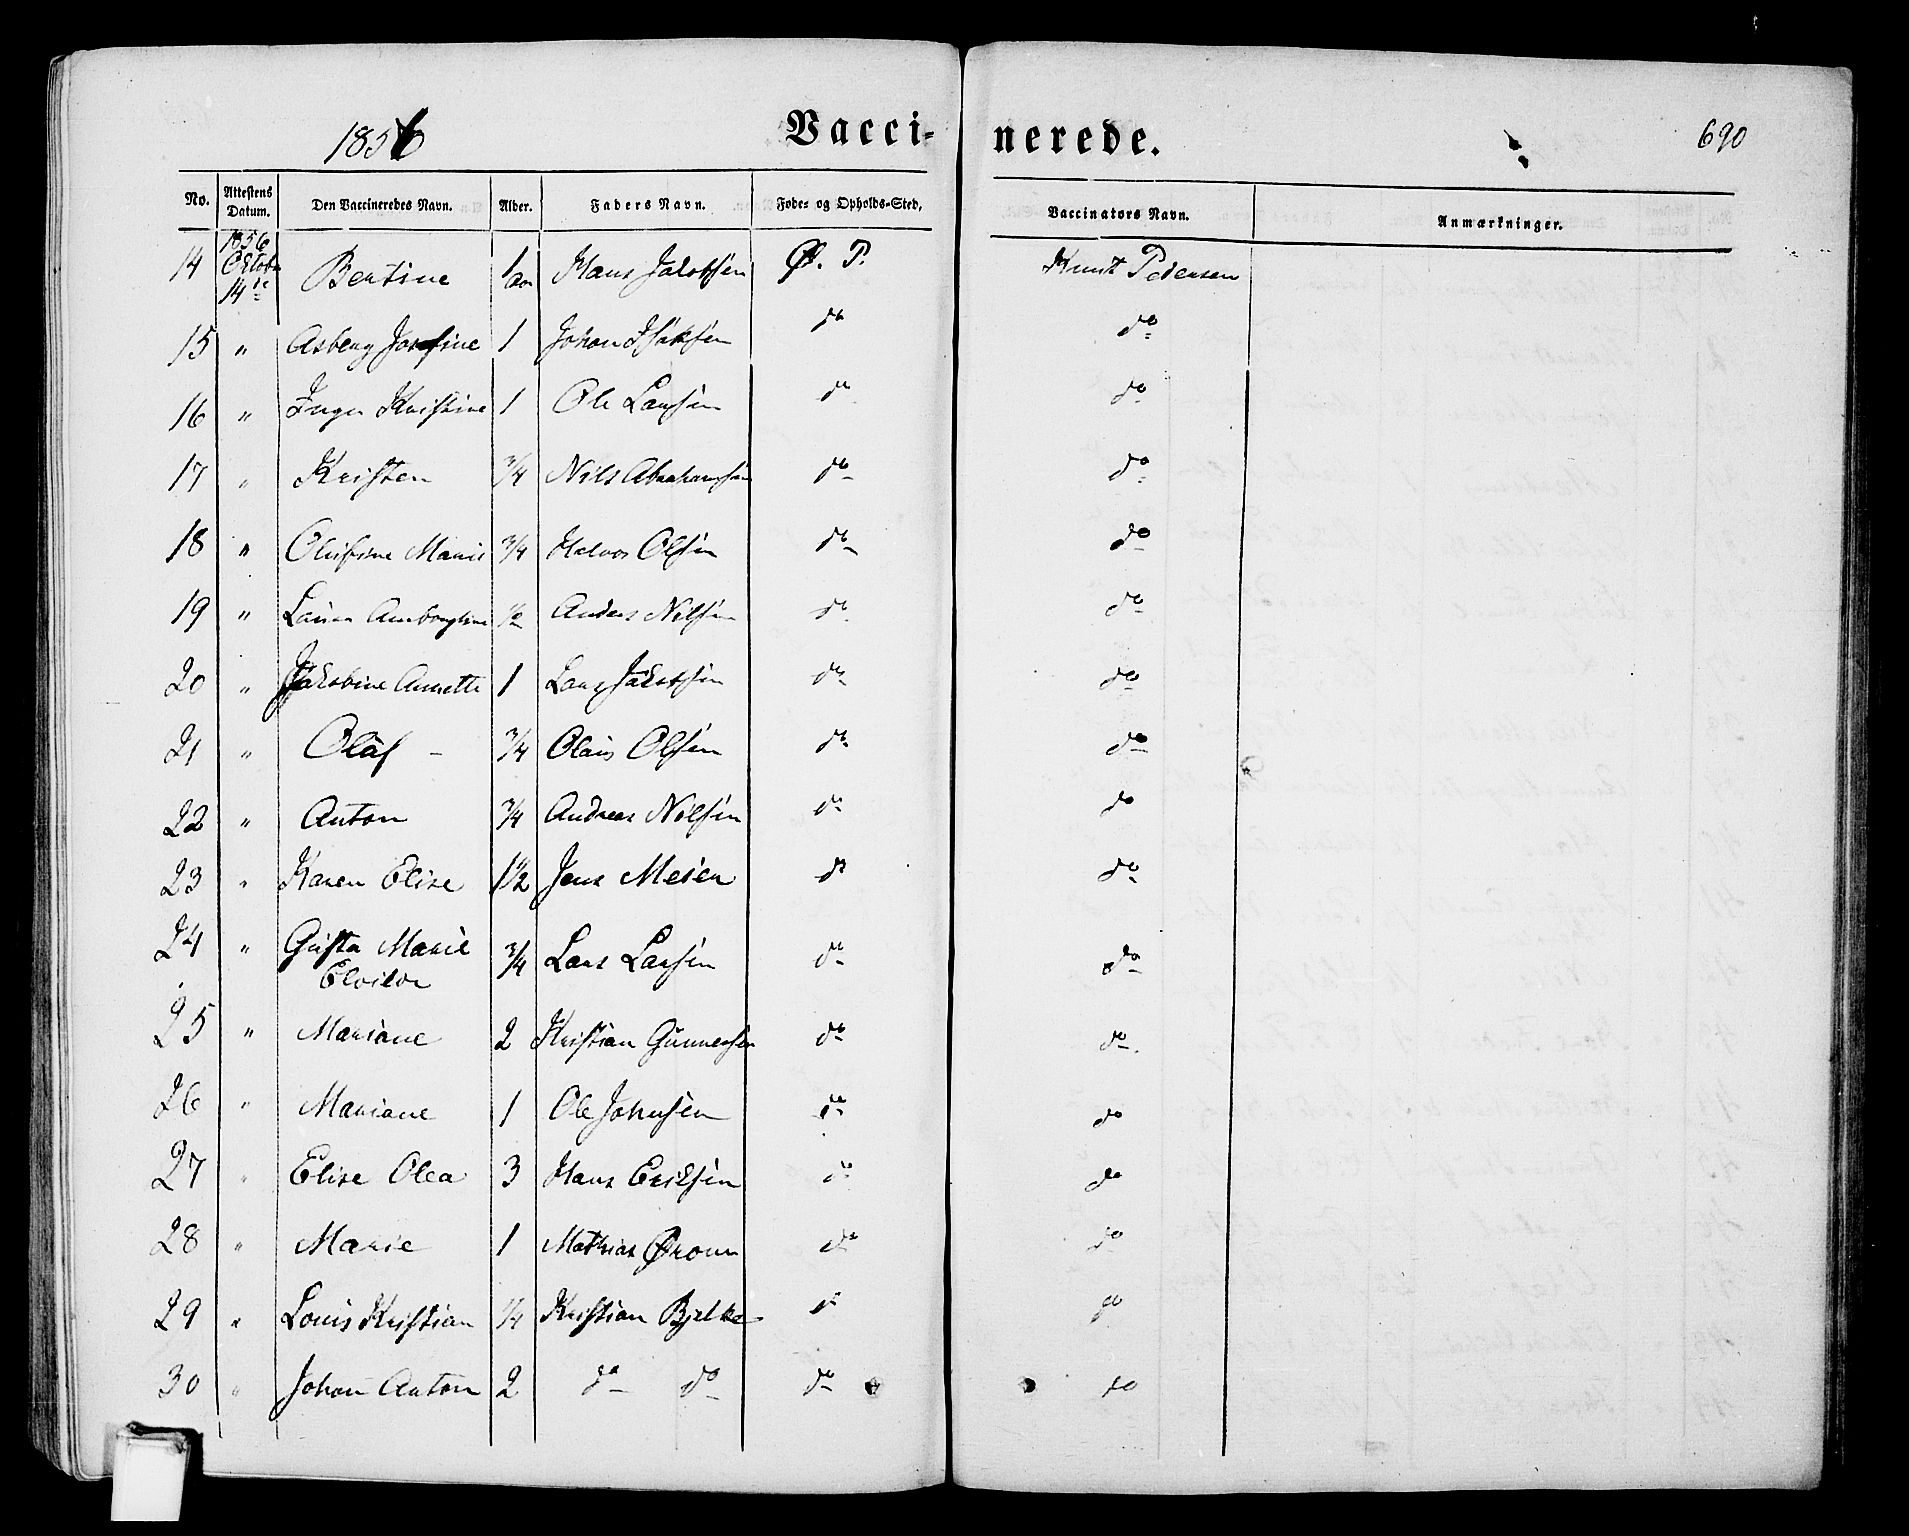 1856 Vacci- nerede. 690
No. Attestens Datum. Den Vaccineredes Navn. Alder. Faders Navn. Føde- og Opholds-Sted, Vaccinators Navn. Anmærkninger.
14 1856 Octobr 14de Bertine 1 aar Hans Jakobsen Ø. P. Knut Pedersen
15 " Asberg Josefine 1 Johan Isaksen do do
16 " Inger Kristine 1 Ole Larsen do do
17 " Kristen 3/4 Nils Abrahamsen do do
18 " Olufine Marie 3/4 Halvor Olsen do do
19 " Laura 1/2 Anders Nilsen do do
20 " Jakobine Annette 1 Lars Jakobsen do do
21 " Olaf - 3/4 Olaus Olsen do do
22 " Anton 3/4 Andreas Nilsen do do
23 " Karen Elise 1 1/2 Jens Meien do do
24 " Gusta Marie 3/4 Lars Larsen do do
Elvilde
25 " Mariane 2 Kristian Gunnersen do do
26 " Mariane 1 Ole Johnsen do do
27 " Elise Olea 3 Hans Eriksen do do
28 " Marie 1 Mathias Øroun do do
29 " Louis Kristian 1/4 Kristian Bjelke do do
30 " Johan Anton 2 do do do do